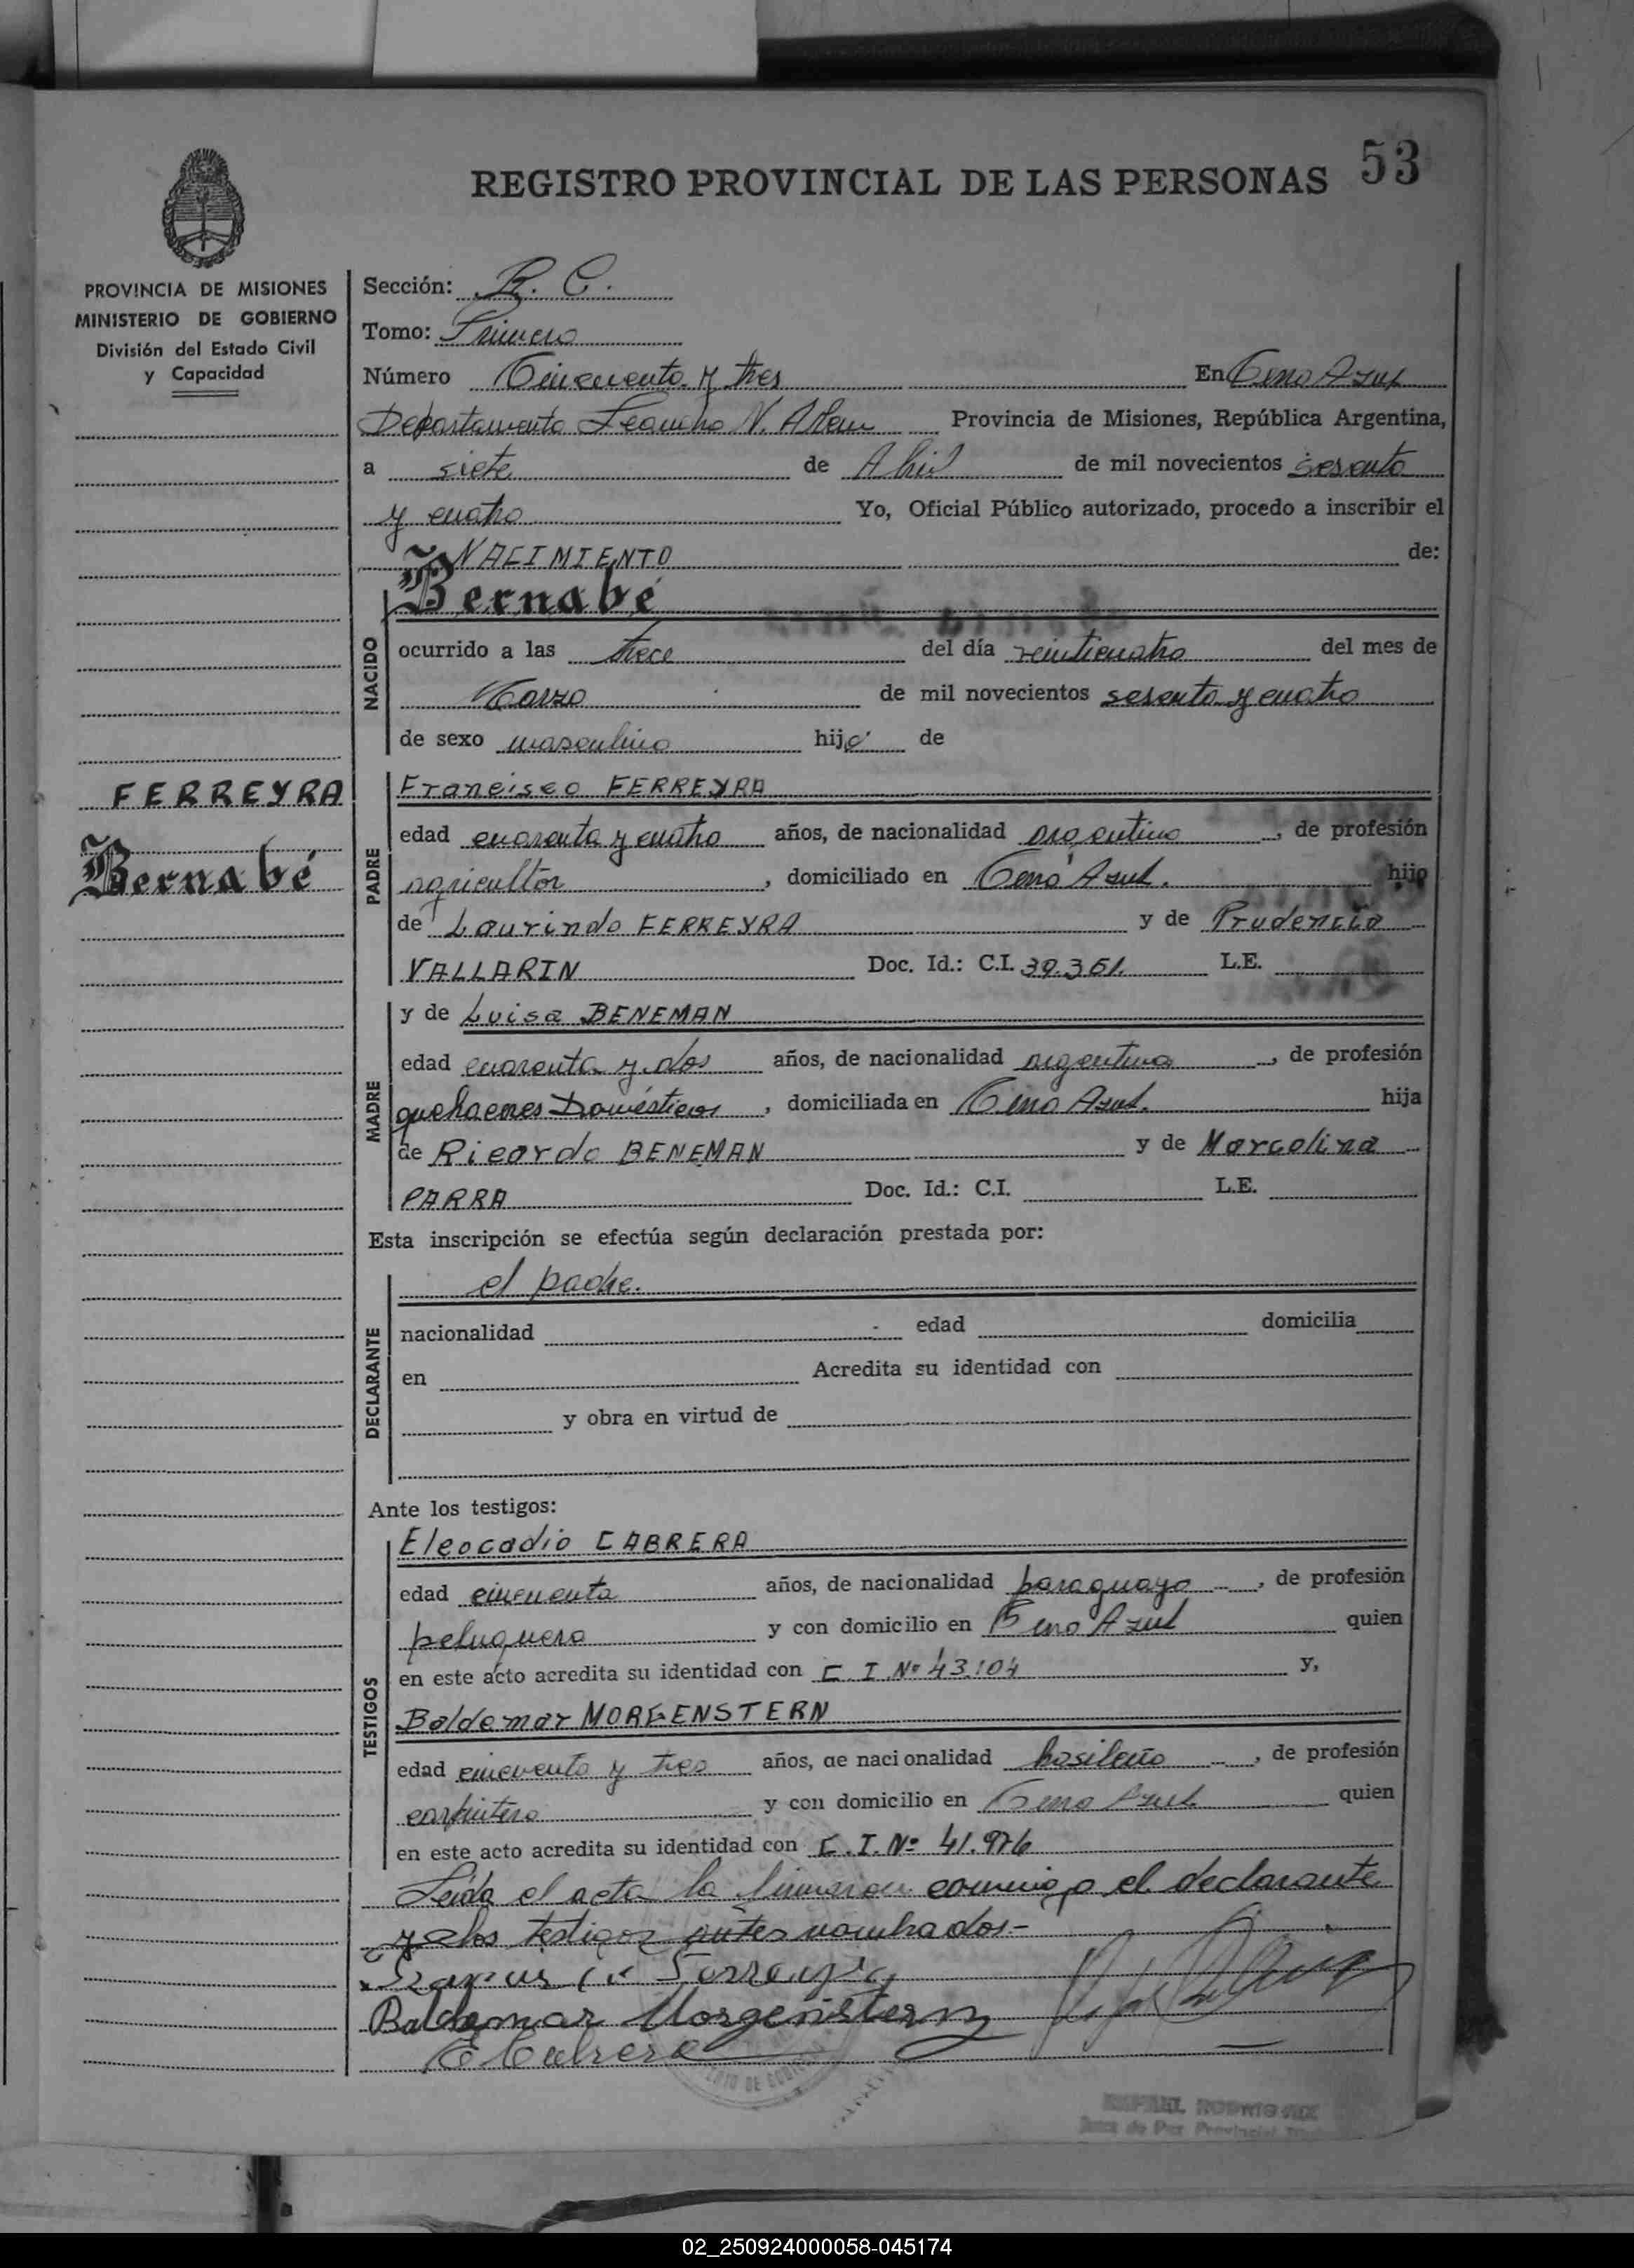 53
REGISTRO PROVINCIAL DE LAS PERSONAS
PROVINCIA DE MISIONES
MINISTERIO DE GOBIERNO
División del Estado Civil
y Capacidad
FERREYRA
Bernabé
Sección: R. C.
Tomo: Primero
Número Cincuenta y tres En Cerro Azul
Departamento Leandro N. Alem Provincia de Misiones, República Argentina,
a siete de Abril de mil novecientos sesenta
y cuatro Yo, Oficial Público autorizado, procedo a inscribir el
NACIMIENTO de:
NACIDO
Bernabé
ocurrido a las trece del día veinticuatro del mes de
Marzo de mil novecientos sesenta y cuatro
de sexo masculino hijo de
PADRE
Francisco FERREYRA
edad cuarenta y cuatro años, de nacionalidad argentino, de profesión
agricultor, domiciliado en Cerro Azul. hijo
de Laurindo FERREYRA y de Prudencia
VALLARIN Doc. Id.: C.I. 39.361. L.E.
MADRE
y de Luisa BENEMAN
edad cuarenta y dos años, de nacionalidad argentina, de profesión
quehaceres Domésticos, domiciliada en Cerro Azul. hija
de Ricardo BENEMAN y de Marcolina
PARRA Doc. Id.: C.I. L.E.
Esta inscripción se efectúa según declaración prestada por:
DECLARANTE
el padre.
nacionalidad edad domicilia
en Acredita su identidad con
y obra en virtud de
Ante los testigos:
TESTIGOS
Eleocadio CABRERA
edad cincuenta años, de nacionalidad paraguayo, de profesión
peluquero y con domicilio en Cerro Azul quien
en este acto acredita su identidad con C. I. Nº 43.104 y,
Baldemar MORGENSTERN
edad cincuenta y tres años, de nacionalidad brasileño, de profesión
carpintero y con domicilio en Cerro Azul quien
en este acto acredita su identidad con C. I. Nº 41.976
Leida el acta la firmaron conmigo el declarante
y los testigos antes nombrados.-
Ferreyra
Baldemar Morgenstern
E Cabrera
RAFAEL RODRIGUEZ
Juez de Paz Provincial
02_250924000058-045174